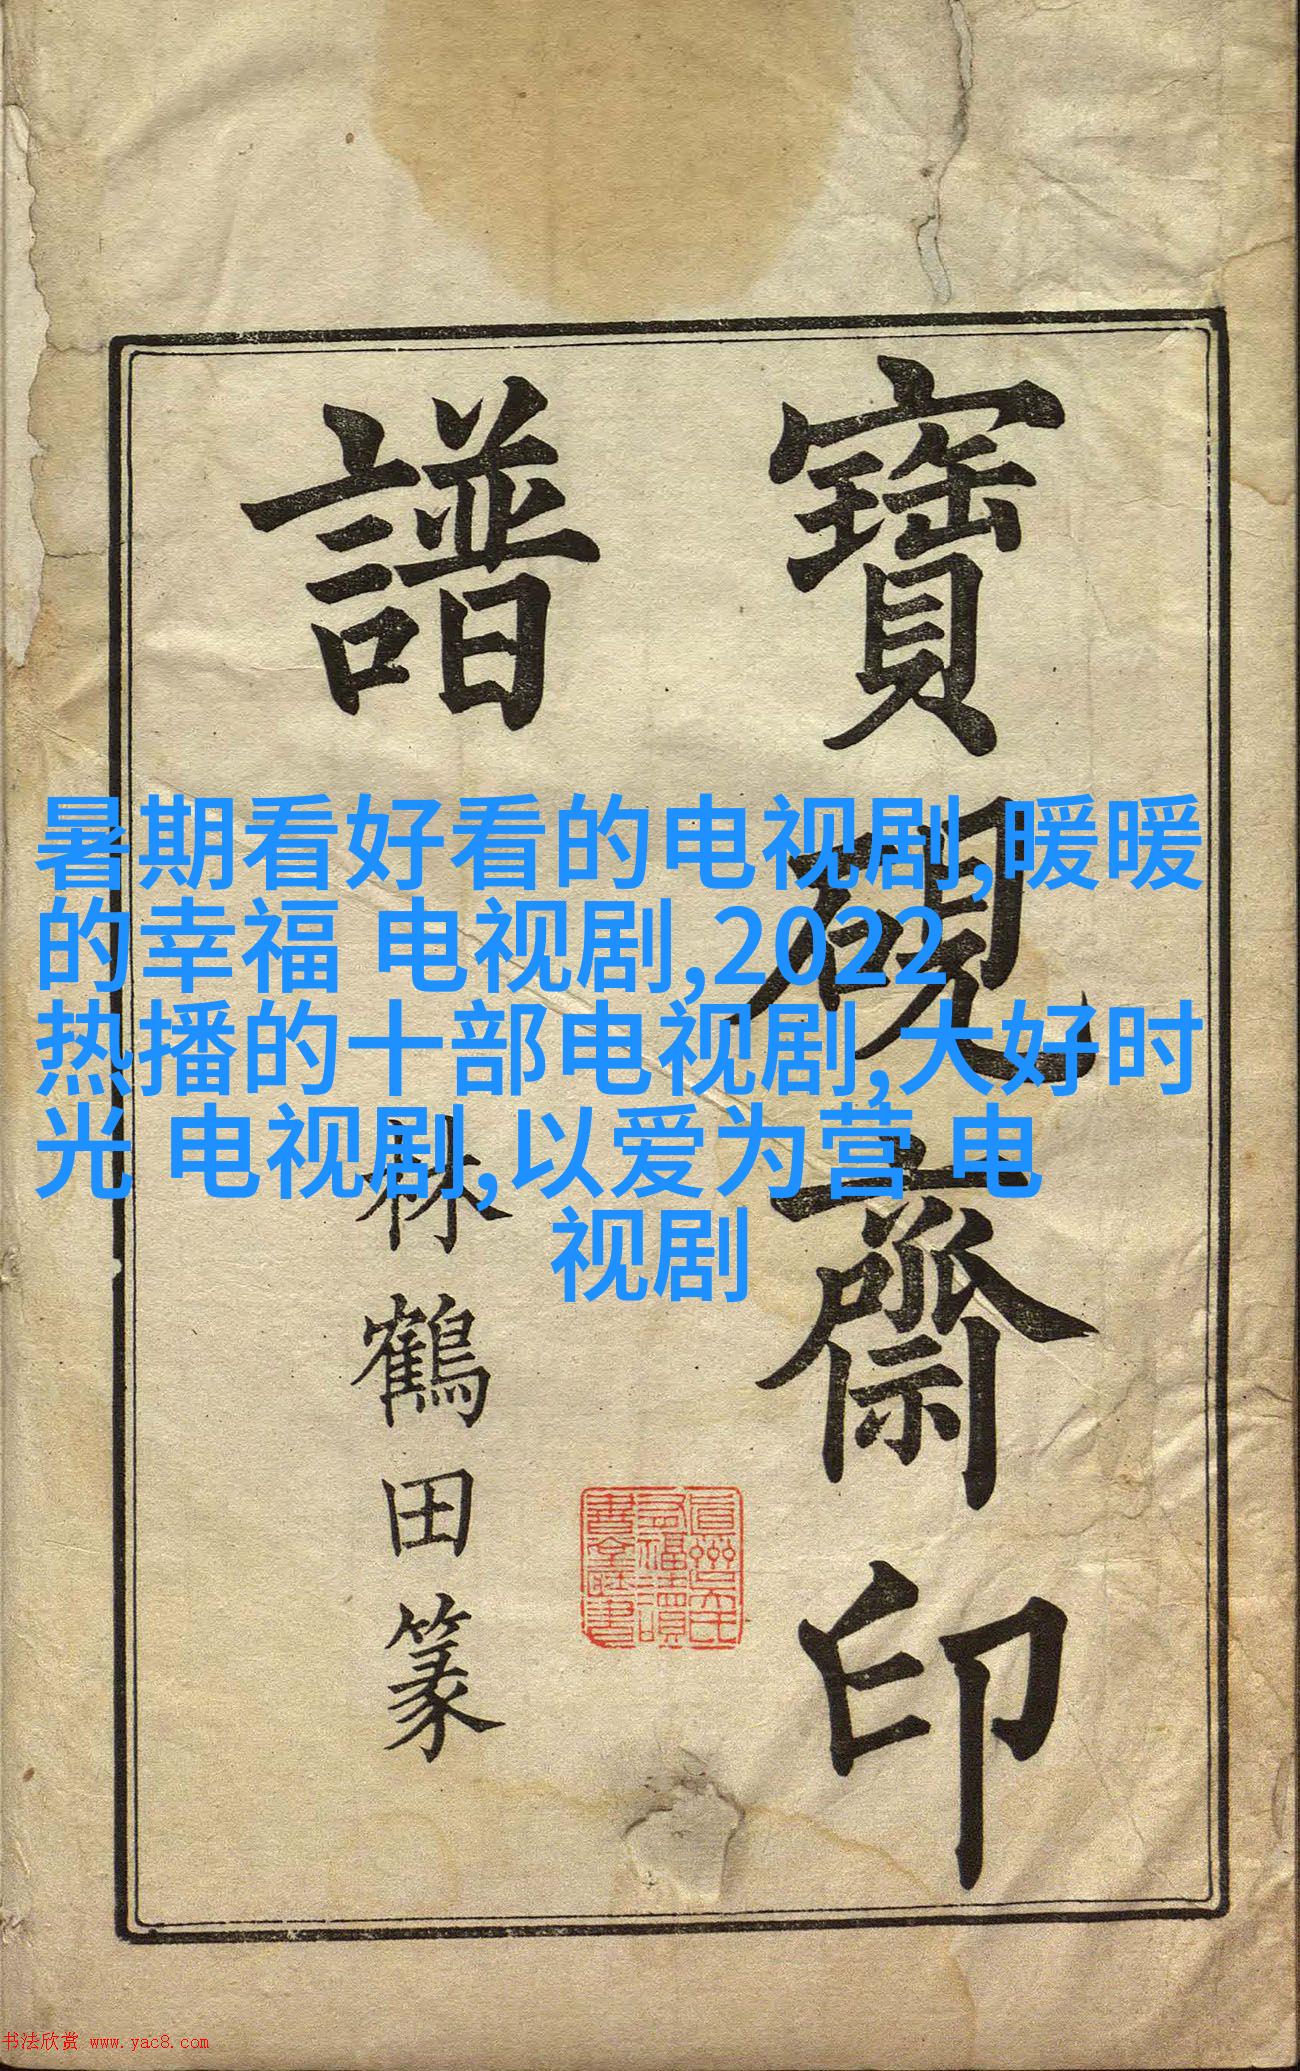 寶硯齋印
譜
林鶴田篆
暑期看好看的电视剧,暖暖
的幸福 电视剧,2022
热播的十部电视剧,大好时
光 电视剧,以爱为营 电
视剧
书法欣赏 www.yac8.com